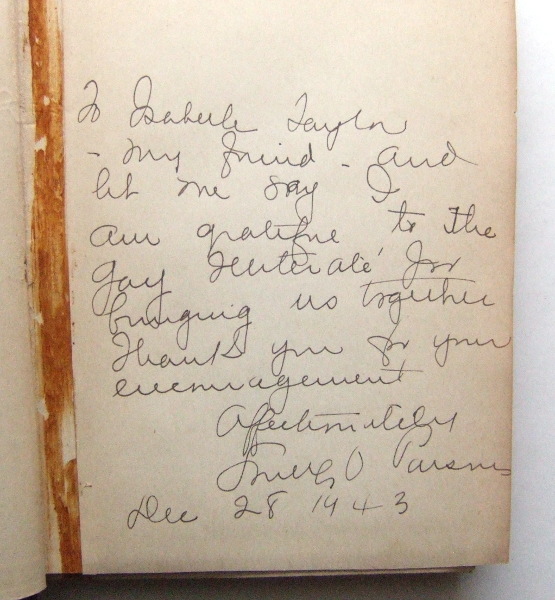 To Isabelle Taylor
- my friend - and
let me say I
am grateful to the
Gay Illiterate for
bringing us together
Thank you for your
encouragement
Affectionately
Louella O Parsons
Dec 28 1943